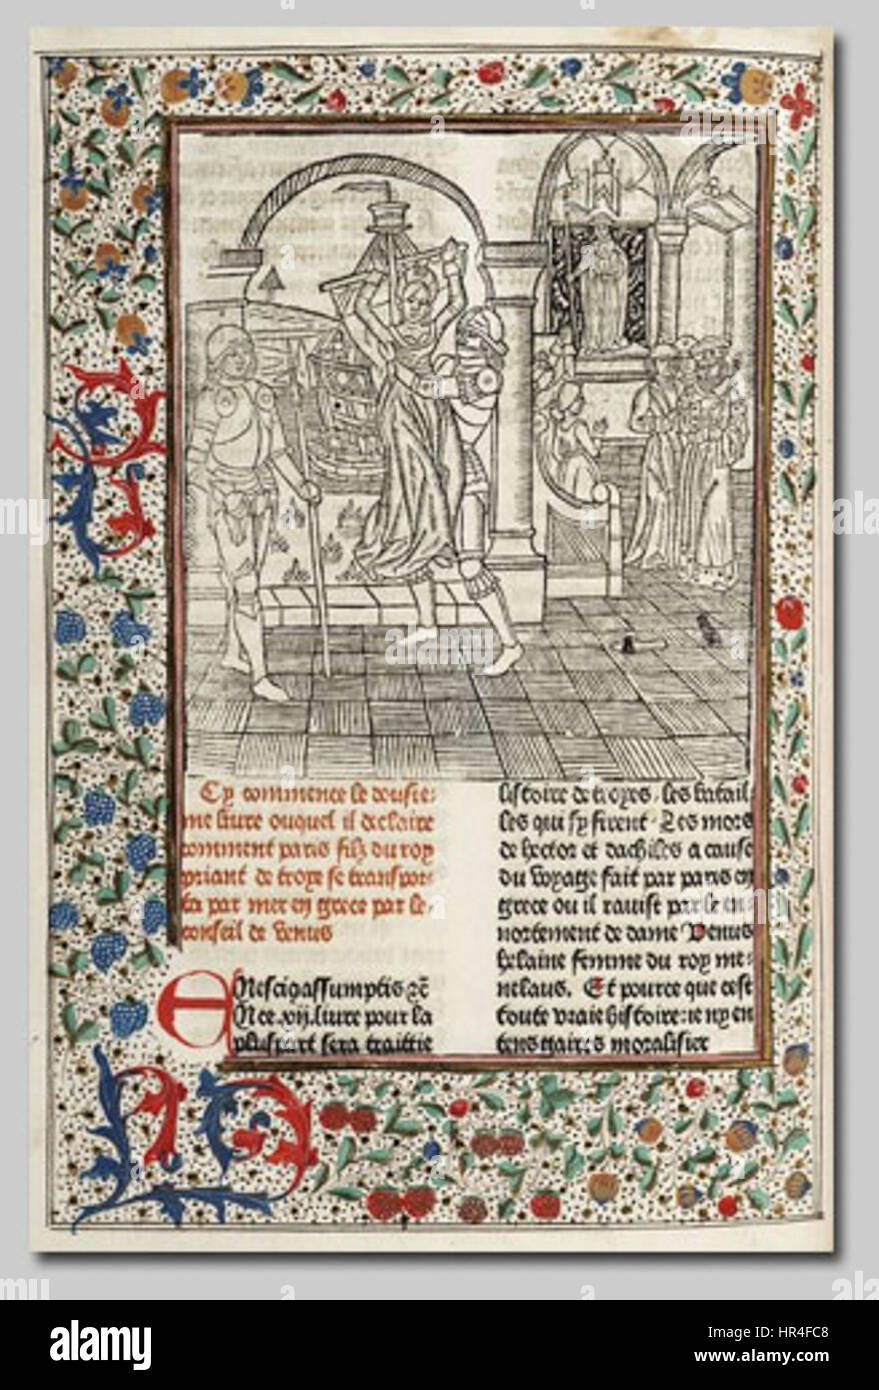 Cy commence le dousie:
me liure ouquel il declaire
comment paris filz du roy
priant de troye se transpor-
ta par mer en grece par le-
conseil de venus
EN escig assumptis zc̄
Nce .xij. liure pour la
pluspart sera traittie
listoire de troyes. les batail
les qui sy firent. Les mors
de hector et dachiles a cause
du voyage fait par paris en
grece ou il rauist par le en
nortement de dame Venus
helaine femme du roy me-
nelaus. Et pource que cest
toute vraie histoire: ie ny en
tens gaires moralisier
alamy
Image ID: HR4FC8
www.alamy.com